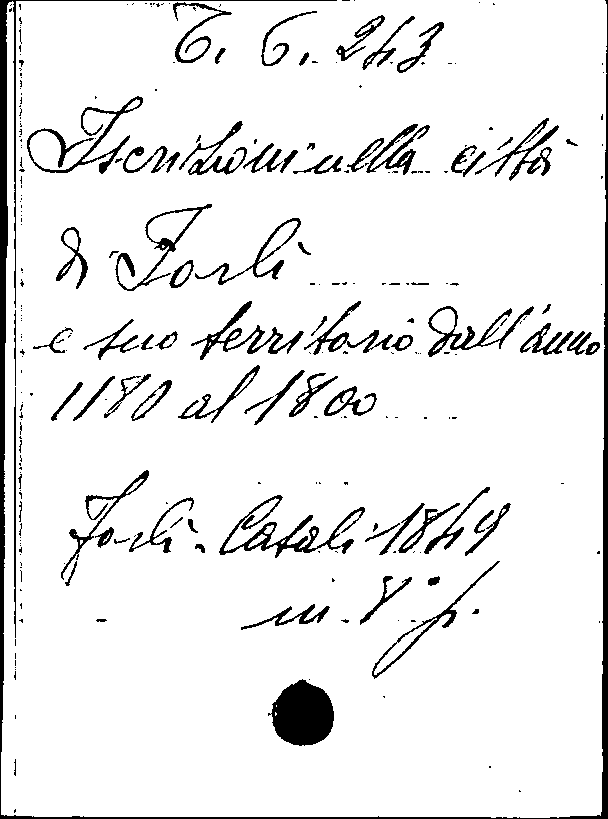 6. 6. 243
Iscrizioni nella città
di Forlì
e suo territorio dall'anno
1180 al 1800
Forlì. Casali 1849
in 8° p.